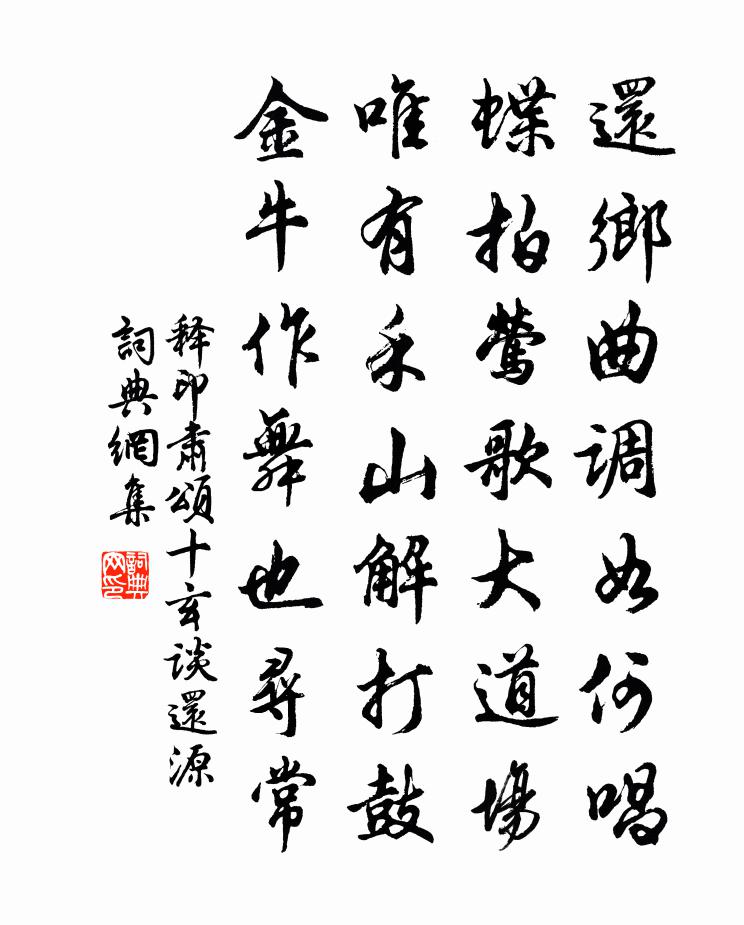 還鄉曲調如何唱
蝶拍鶯歌大道場
唯有禾山解打鼓
金牛作舞也尋常
释印肅頌十玄談還源
詞典網集
詞典網印